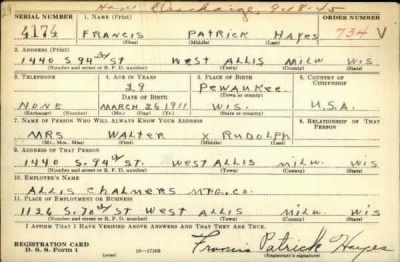 Hon Discharge 9-18-45
SERIAL NUMBER 1. NAME (Print) ORDER NUMBER
4174 FRANCIS PATRICK HAYES 734 V
(First) (Middle) (Last)
2. ADDRESS (Print)
1440 S. 94th ST WEST ALLIS MILW WIS.
(Number and street or R. F. D. number) (Town) (County) (State)
3. TELEPHONE 4. AGE IN YEARS 5. PLACE OF BIRTH 6. COUNTRY OF CITIZENSHIP
29 PEWAUKEE
DATE OF BIRTH (Town or county)
NONE MARCH 26 1911 WIS. U.S.A.
(Exchange) (Number) (Mo.) (Day) (Yr.) (State or country)
7. NAME OF PERSON WHO WILL ALWAYS KNOW YOUR ADDRESS 8. RELATIONSHIP OF THAT PERSON
MRS WALTER X RUDOLPH
(Mr., Mrs., Miss) (First) (Middle) (Last)
9. ADDRESS OF THAT PERSON
1440 S. 94th ST. WEST ALLIS MILW. WIS
(Number and street or R. F. D. number) (Town) (County) (State)
10. EMPLOYER'S NAME
ALLIS CHALMERS MFG. CO.
11. PLACE OF EMPLOYMENT OR BUSINESS
1126 S. 70th ST WEST ALLIS MILW. WIS
(Number and street or R. F. D. number) (Town) (County) (State)
I AFFIRM THAT I HAVE VERIFIED ABOVE ANSWERS AND THAT THEY ARE TRUE.
REGISTRATION CARD
D. S. S. Form 1 (over) 16-17105 Francis Patrick Hayes
(Registrant's signature)